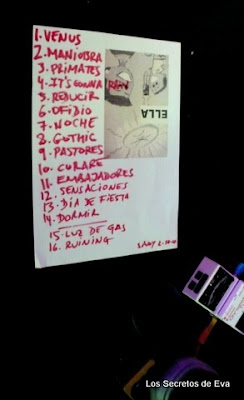 1. VENUS
2. MANIOBRA
3. PRIMATES
4. IT'S GONNA RAIN
5. REDUCIR
6. OFIDIO
7. NOCHE
8. GOTHIC
9. PASTORES
10. CURARE
11. EMBAJADORES
12. SENSACIONES
13. DÍA DE FIESTA
14. DORMIR
15. LUZ DE GAS
16. RUINING
ELLA
Los Secretos de Eva